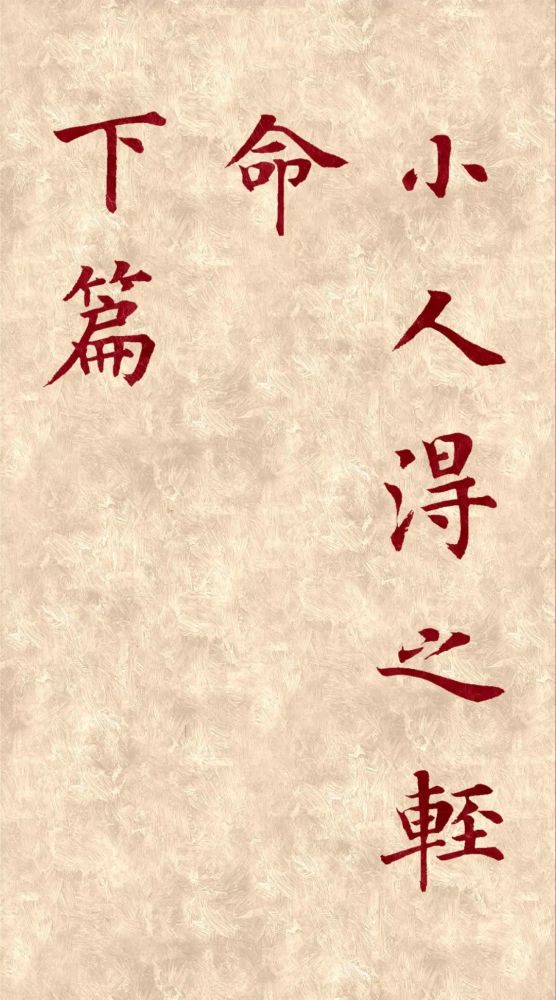 小人得之輕
命
下篇